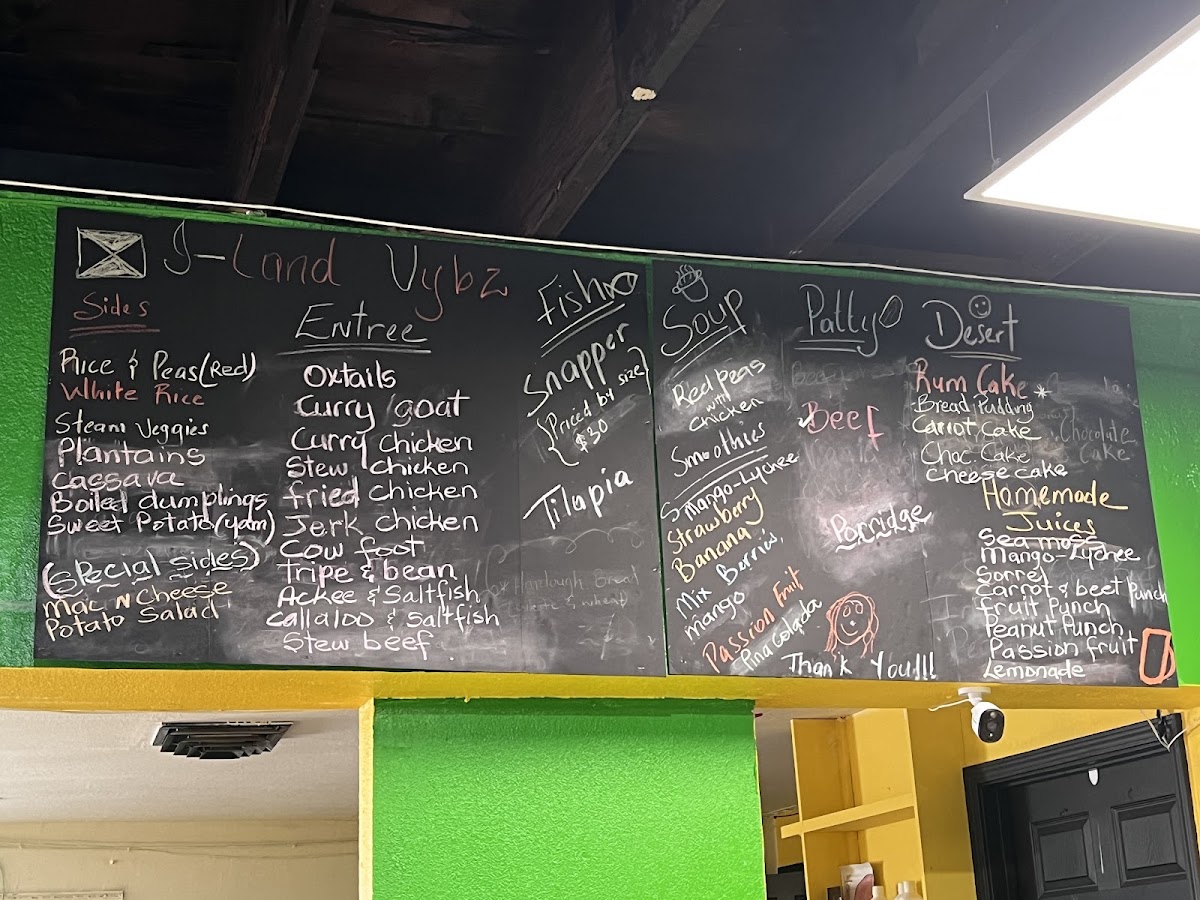 I-Land Vybz
Sides
Rice & Peas (Red)
White Rice
Steam Veggies
Plantains
Cassava
Boiled dumplings
Sweet Potato (yam)
(special sides)
Mac N Cheese
Potato Salad
Entree
Oxtails
Curry goat
Curry chicken
Stew chicken
fried chicken
Jerk chicken
Cow foot
Tripe & bean
Ackee & Saltfish
Callaloo & Saltfish
Stew beef
Fish
Snapper
{Priced by size}
$30
Tilapia
Hardough Bread
white & wheat
Soup
Red peas
with
chicken
Smoothies
Mango-Lychee
Strawberry
Banana
Mix Berries
mango
Passion Fruit
Pina Colada
Patty
Beef
Porridge
Thank You!!!
Desert
Rum Cake *
Bread Pudding
Carrot Cake
Choc. Cake
Cheese cake
Chocolate
Cake
Homemade
Juices
Sea moss
Mango-Lychee
Sorrel
Carrot & beet Punch
Fruit Punch
Peanut Punch
Passion fruit
Lemonade